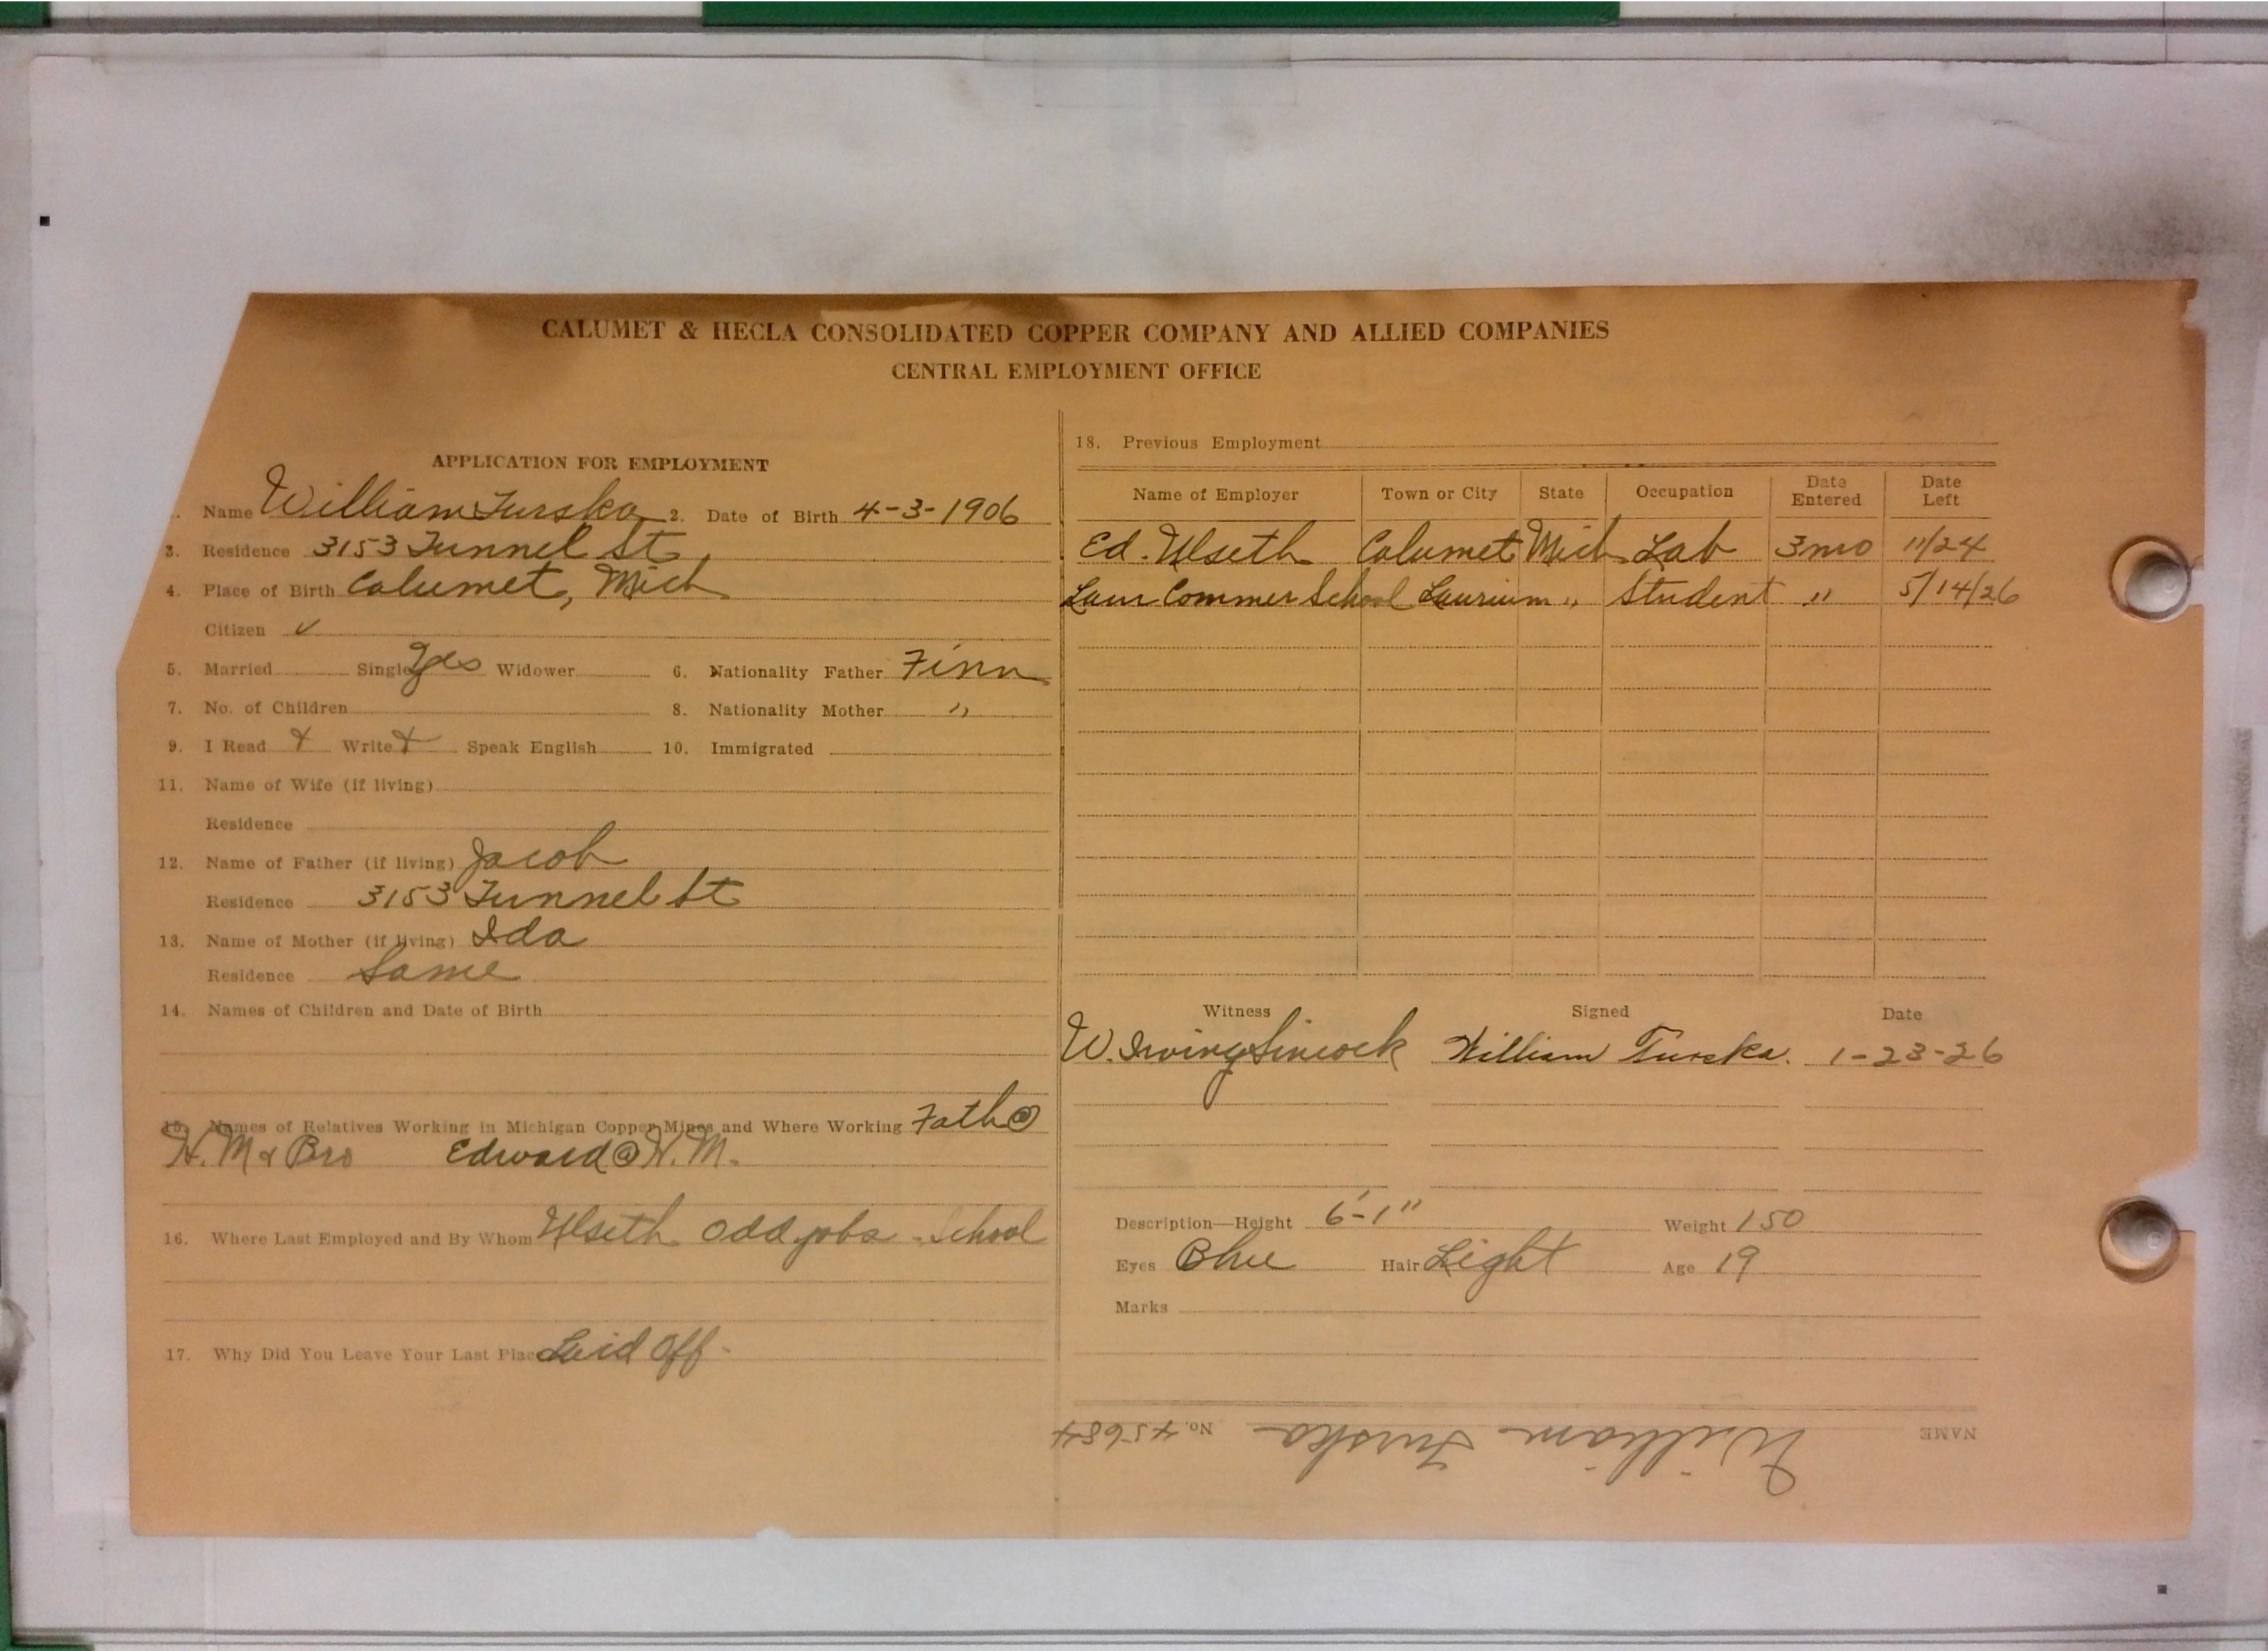 CALUMET & HECLA CONSOLIDATED COPPER COMPANY AND ALLIED COMPANIES
CENTRAL EMPLOYMENT OFFICE
APPLICATION FOR EMPLOYMENT
Name William Turska 2. Date of Birth 4-3-1906
3. Residence 3153 Tunnel St.
4. Place of Birth Calumet, Mich
Citizen ✓
5. Married Single Yes Widower 6. Nationality Father Finn
7. No. of Children 8. Nationality Mother "
9. I Read + Write + Speak English 10. Immigrated
11. Name of Wife (if living)
Residence
12. Name of Father (if living) Jacob
Residence 3153 Tunnel St
13. Name of Mother (if living) Ida
Residence Same
14. Names of Children and Date of Birth
15. Names of Relatives Working in Michigan Copper Mines and Where Working Fath @
H. M & Bro Edward @ H. M.
16. Where Last Employed and By Whom Ulseth odd jobs - School
17. Why Did You Leave Your Last Place Laid Off -
18. Previous Employment
Name of Employer Town or City State Occupation Date Entered Date Left
Ed. Ulseth Calumet Mich Lab 3 mo 11/24
Laur Commer School Laurium " Student " 5/14/26
Witness Signed Date
W. Irving Sincock William Turska. 1-23-26
Description—Height 6'-1" Weight 150
Eyes Blue Hair Light Age 19
Marks
NAME William Turska No. 45684